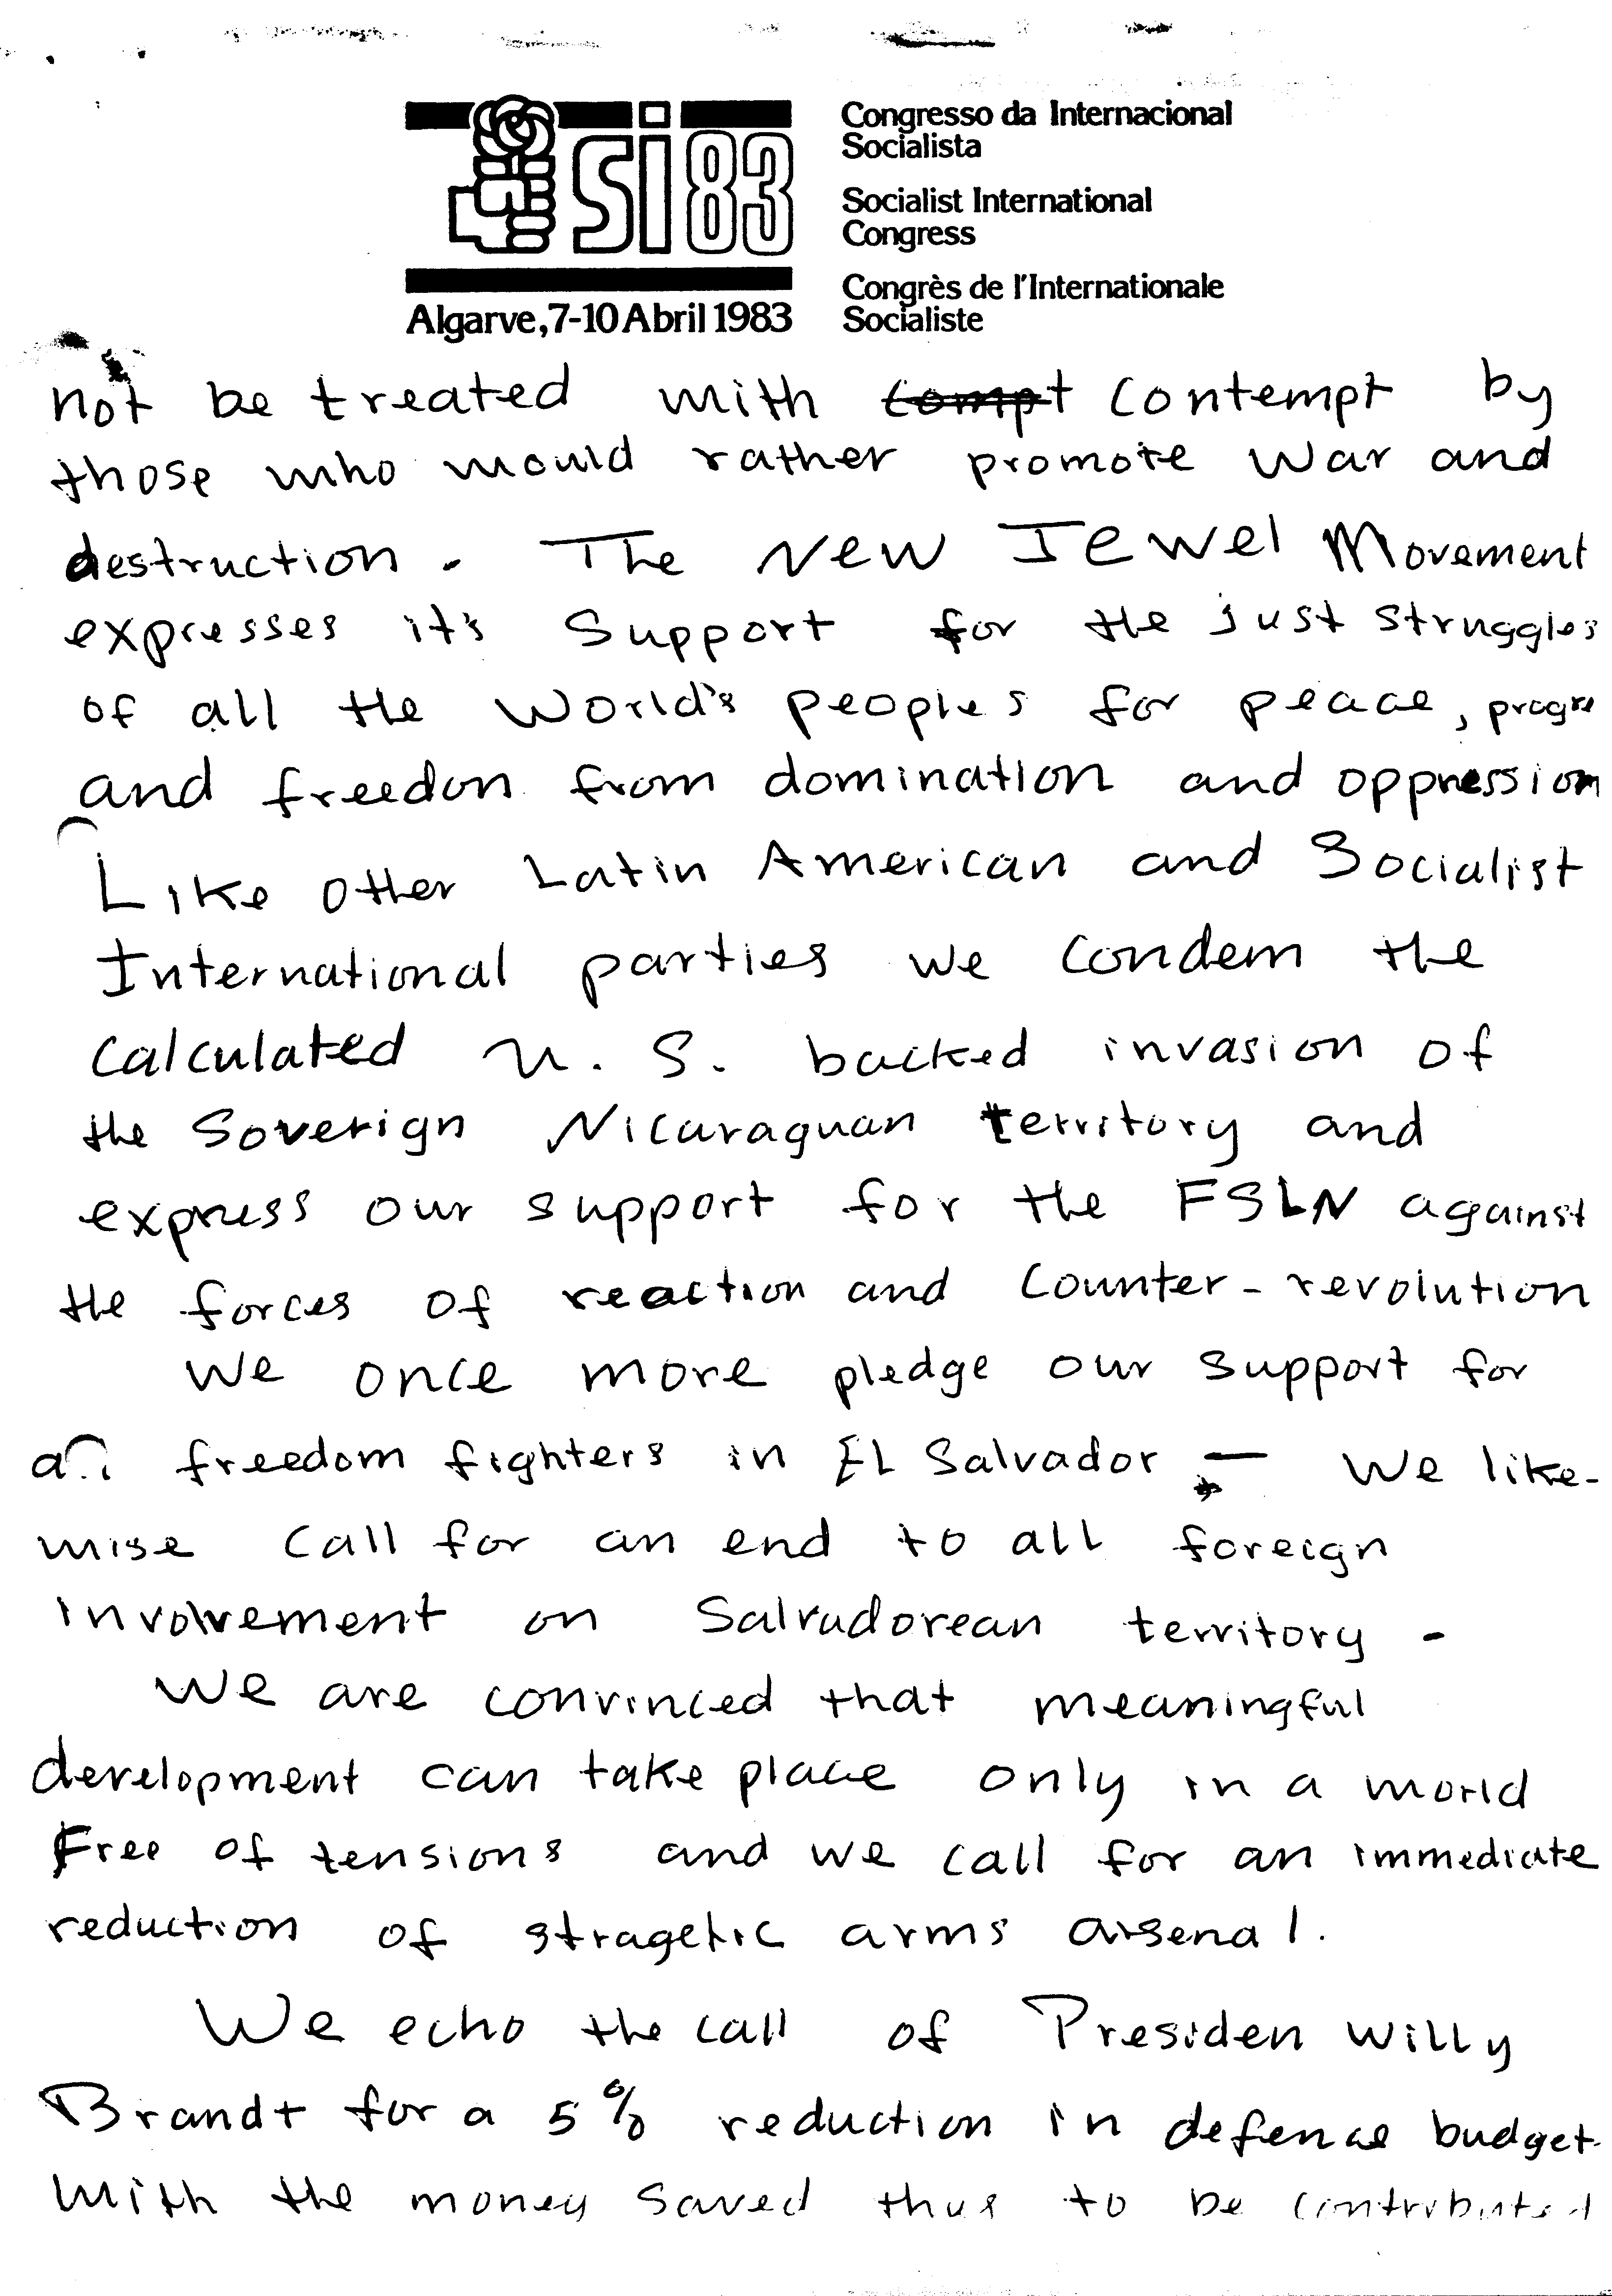 si 83
Algarve, 7-10 Abril 1983
Congresso da Internacional
Socialista
Socialist International
Congress
Congrès de l'Internationale
Socialiste
not be treated with compt contempt by
those who would rather promote War and
destruction. The New Jewel Movement
expresses it's support for the just struggles
of all the World's peoples for peace, progre
and freedon from domination and oppression
Like other Latin American and Socialist
International parties we condem the
calculated U.S. backed invasion of
the Soverign Nicaraguan territory and
express our support for the FSLN against
the forces of reaction and counter-revolution
We once more pledge our support for
freedom fighters in El Salvador - We like-
wise call for an end to all foreign
involvement on Salvadorean territory -
We are convinced that meaningful
development can take place only in a world
Free of tensions and we call for an immediate
reduction of stragetic arms arsenal.
We echo the call of Presiden Willy
Brandt for a 5% reduction in defence budget
With the money saved thus to be contributed